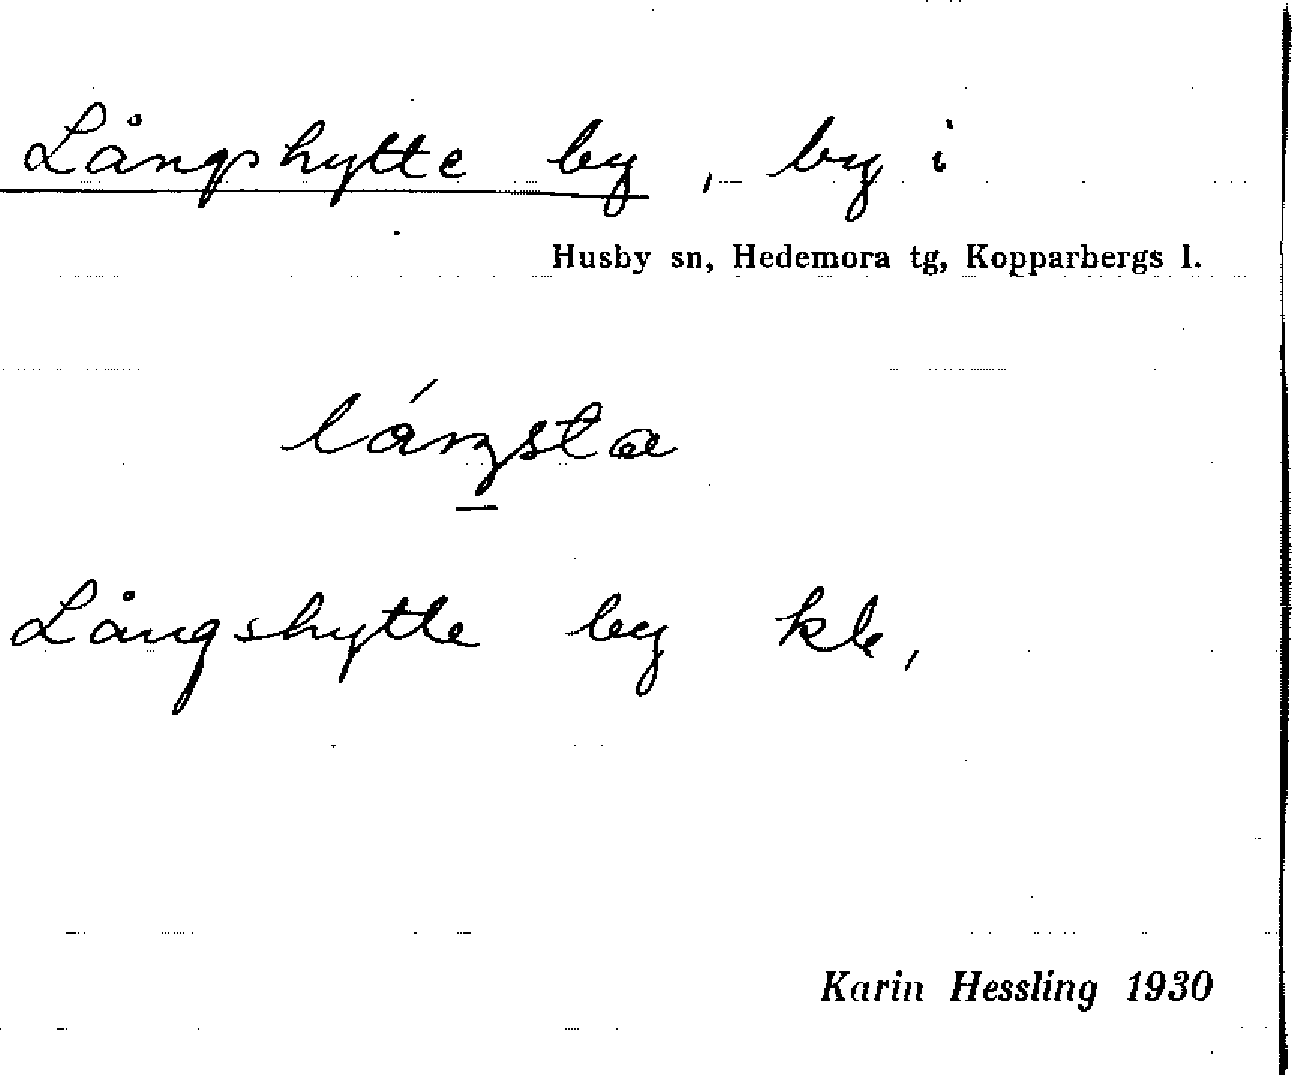 Långshytte by, by i
Husby sn, Hedemora tg, Kopparbergs l.
Långshytte by kk,
Karin Hessling 1930